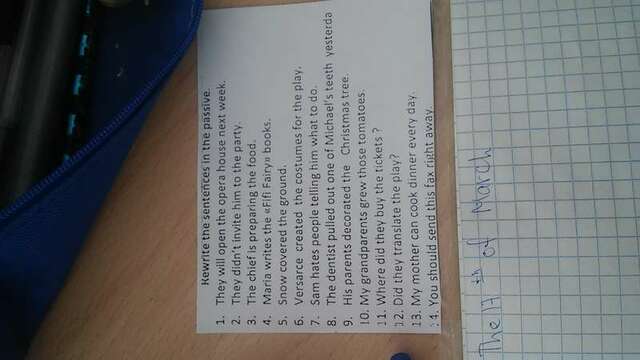 Rewrite the sentences in the passive.
1. They will open the opera house next week.
2. They didn't invite him to the party.
3. The chief is preparing the food.
4. Maria writes the «Fifi Fairy» books.
5. Snow covered the ground.
6. Versarce created the costumes for the play.
7. Sam hates people telling him what to do.
8. The dentist pulled out one of Michael's teeth yesterda
9. His parents decorated the Christmas tree.
10. My grandparents grew those tomatoes.
11. Where did they buy the tickets ?
12. Did they translate the play?
13. My mother can cook dinner every day.
14. You should send this fax right away.
The 17th of March